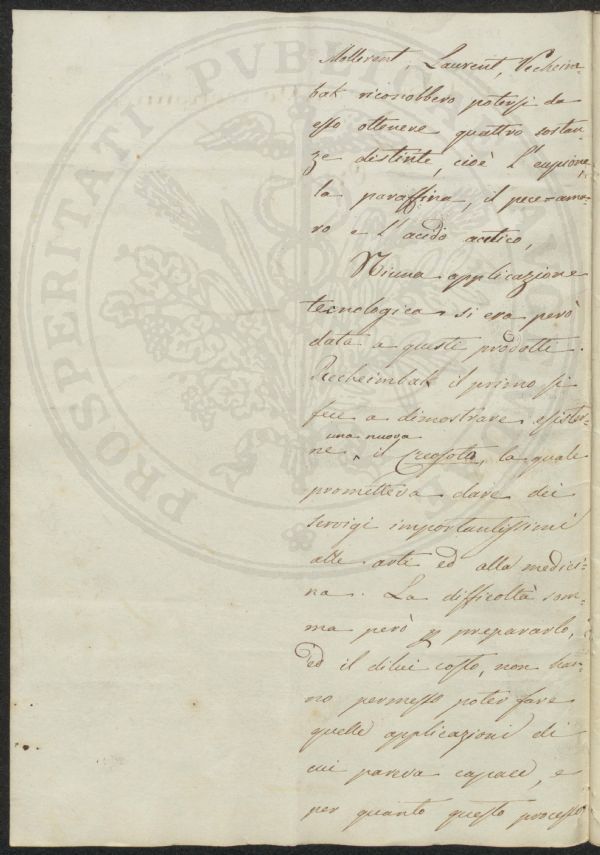 Mollerant, Laurent, Recheim-
bak riconobbero potersi da
esso ottenere quattro sostan-
ze distinte, cioè l'eupione,
la paraffina, il picramo-
ro e l'acido acetico,
Niuna applicazione
tecnologica si era però
data a questi prodotti.
Reicheimbak il primo si
fece a dimostrare esister-
una nuova
ne, il Creosoto, la quale
prometteva dare dei
servigi importantissimi
alle arti ed alla medici-
na. La difficoltà som-
ma però p prepararlo,
ed il dilui costo, non han-
no permesso poter fare
quelle applicazioni di
cui pareva capace, e
per quanto questo processo
PROSPERITATI PVBLICAE